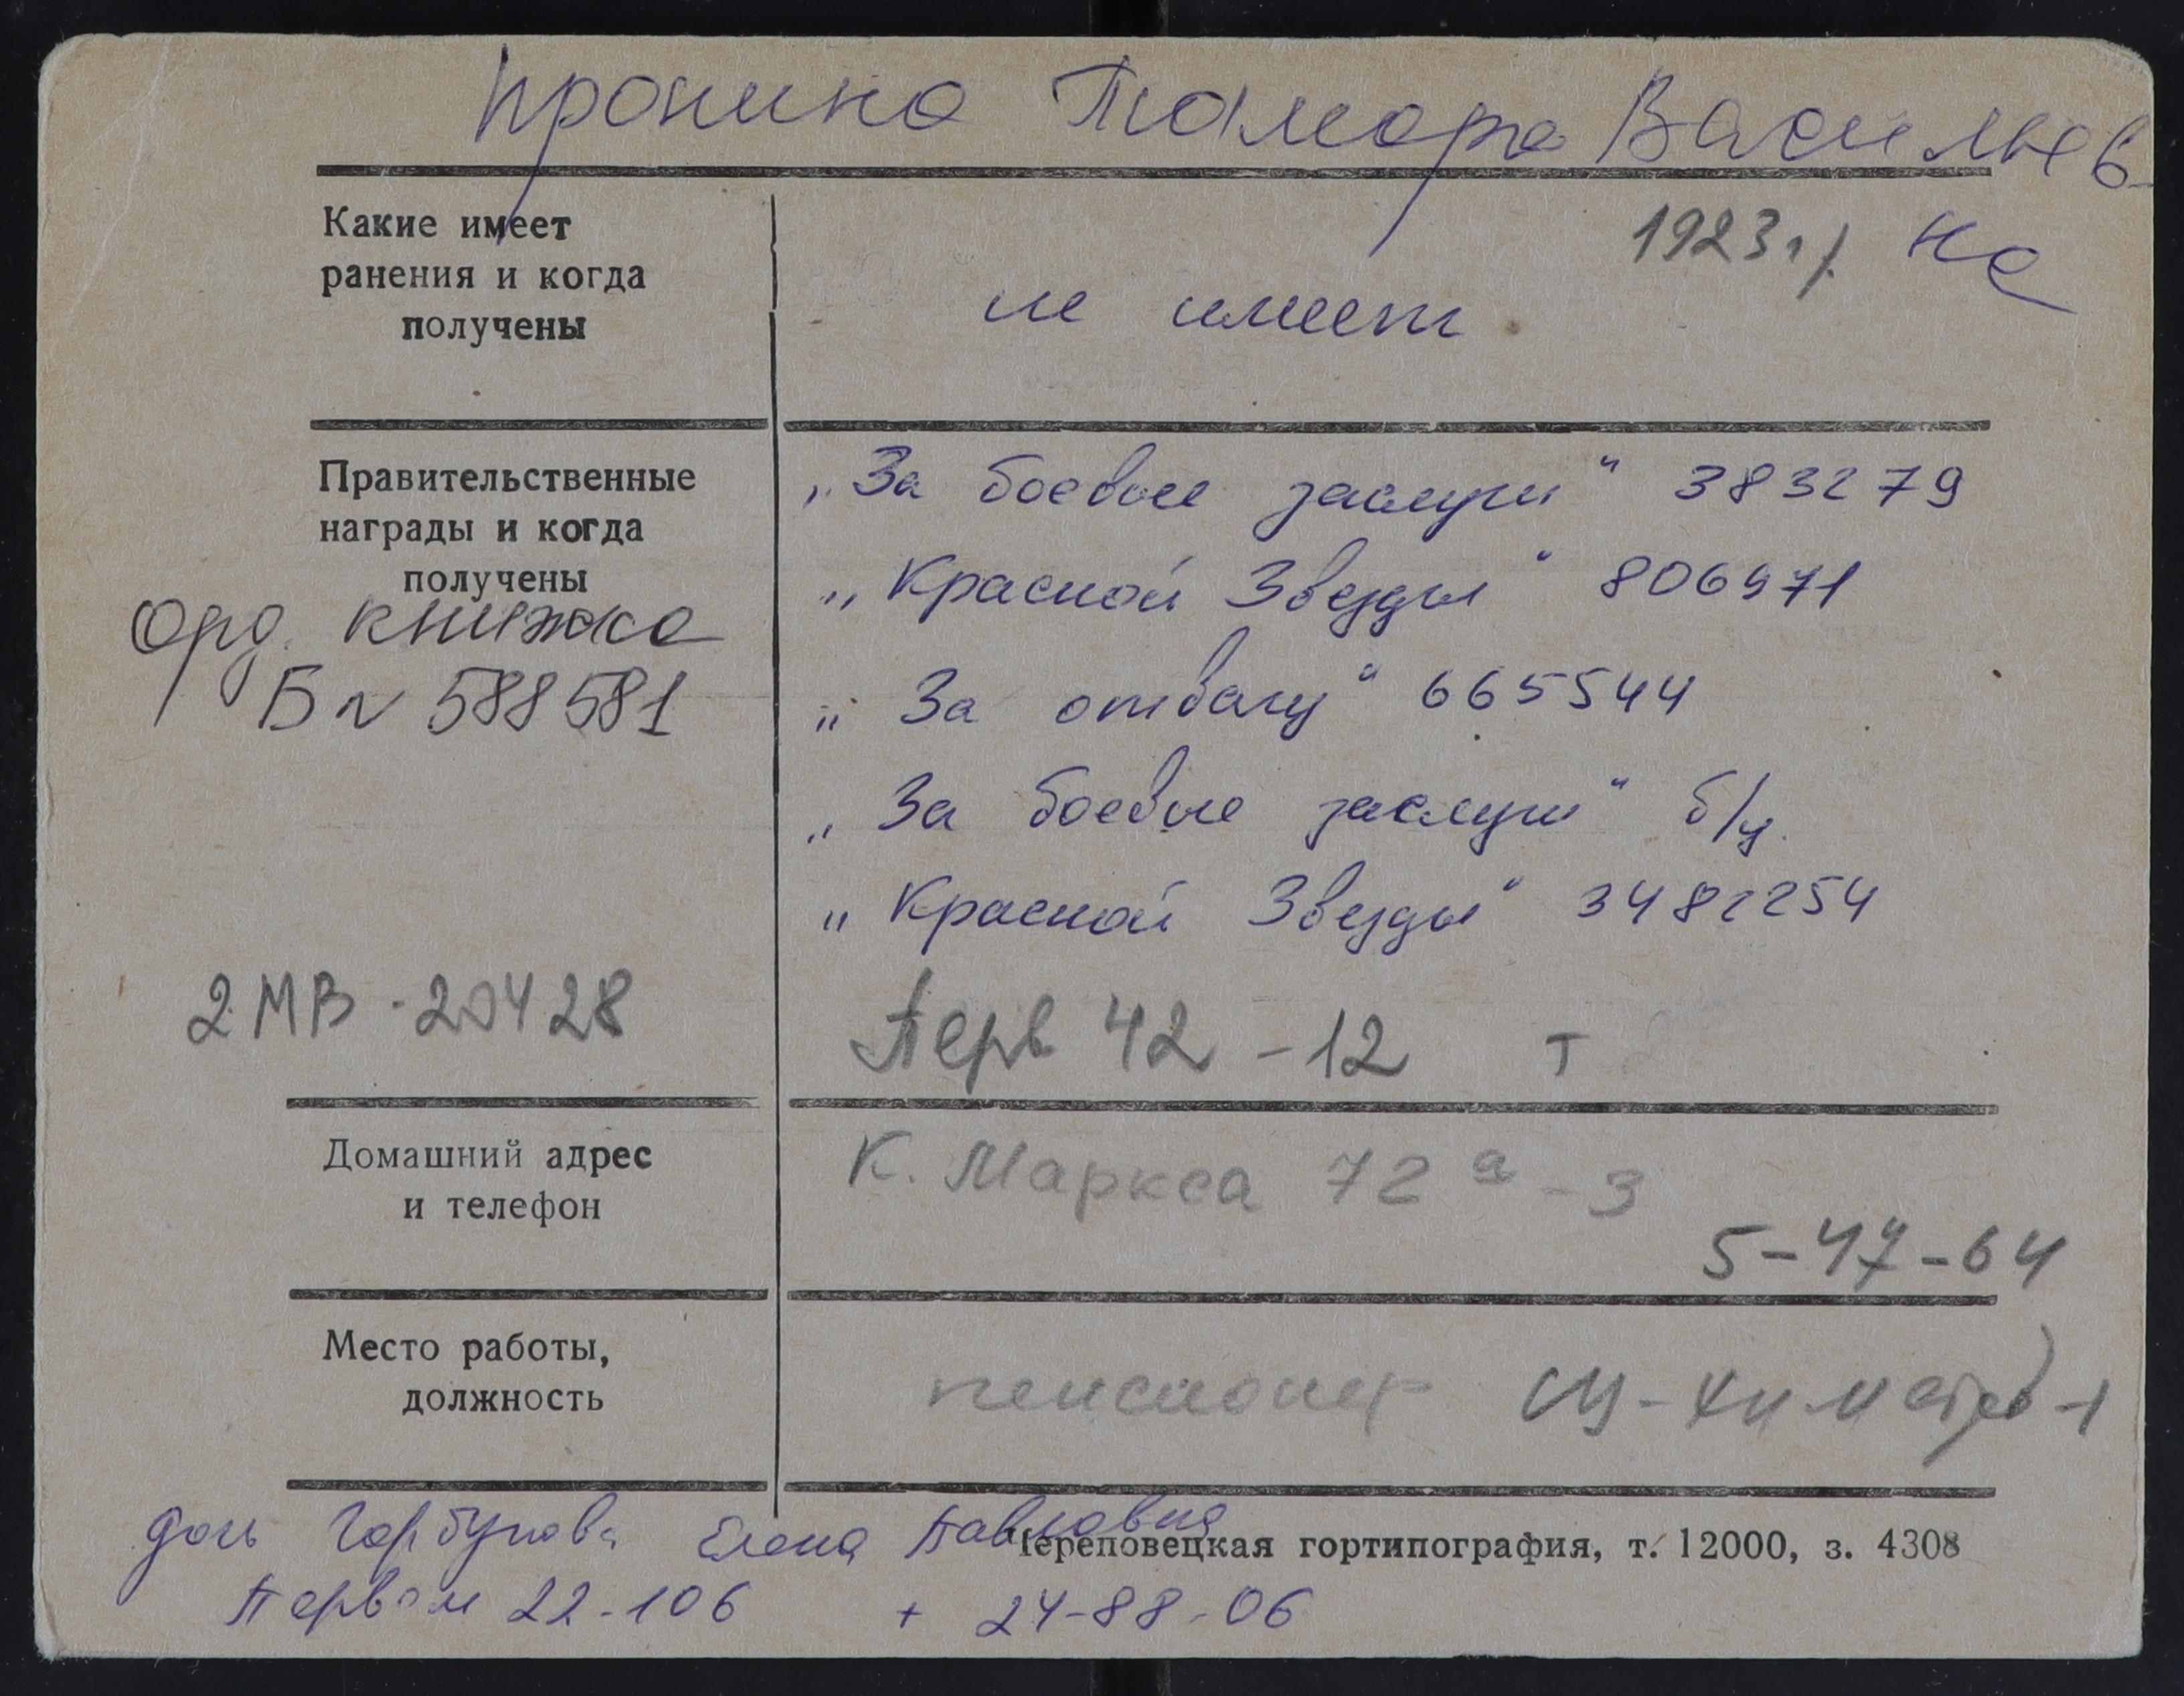 Пронина Тамара Васильев-
на
1923 г/
Какие имеет
ранения и когда
получены
не имеет
Правительственные
награды и когда
получены
Орд. книжка
Б № 588581
„За боевые заслуги" 383279
„Красной Звезды" 806971
„За отвагу" 665544
„За боевые заслуги" б/н
„Красной Звезды" 3482254
2 МВ - 20428
Перв 42 - 12 т
Домашний адрес
и телефон
К. Маркса 72а - 3
5-47-64
Место работы,
должность
пенсионер
дочь Горбунова Елена Павловна
Череповецкая гортипография, т. 12000, з. 4308
Первом 22-106 т 24-88-06